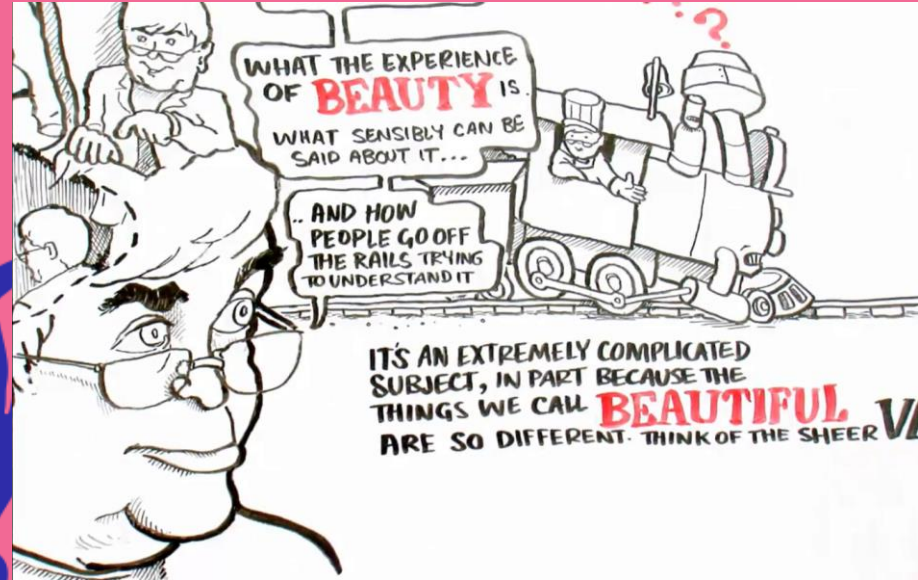 WHAT THE EXPERIENCE
OF BEAUTY IS.
WHAT SENSIBLY CAN BE
SAID ABOUT IT...
.. AND HOW
PEOPLE GO OFF
THE RAILS TRYING
TO UNDERSTAND IT
?
IT'S AN EXTREMELY COMPLICATED
SUBJECT, IN PART BECAUSE THE
THINGS WE CALL BEAUTIFUL
ARE SO DIFFERENT. THINK OF THE SHEER